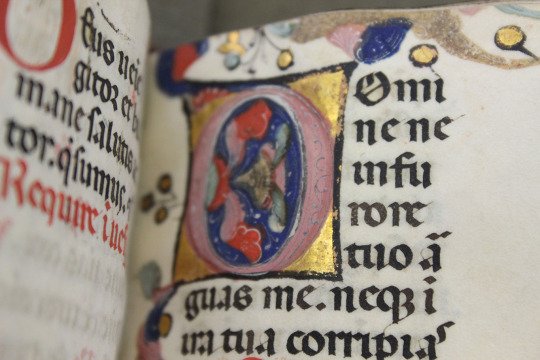 Deus
gitor et
mane salutis
tor. qsumus.
Require i
DOmi
ne ne
infu
rore
tuo ā
guas me. neqꝫ i
ira tua corripias